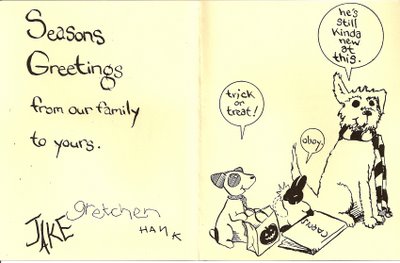 Seasons
Greetings
from our family
to yours.
JAKE
gretchen
HANK
trick
or
treat!
oboy.
he's
still
kinda
new
at
this.